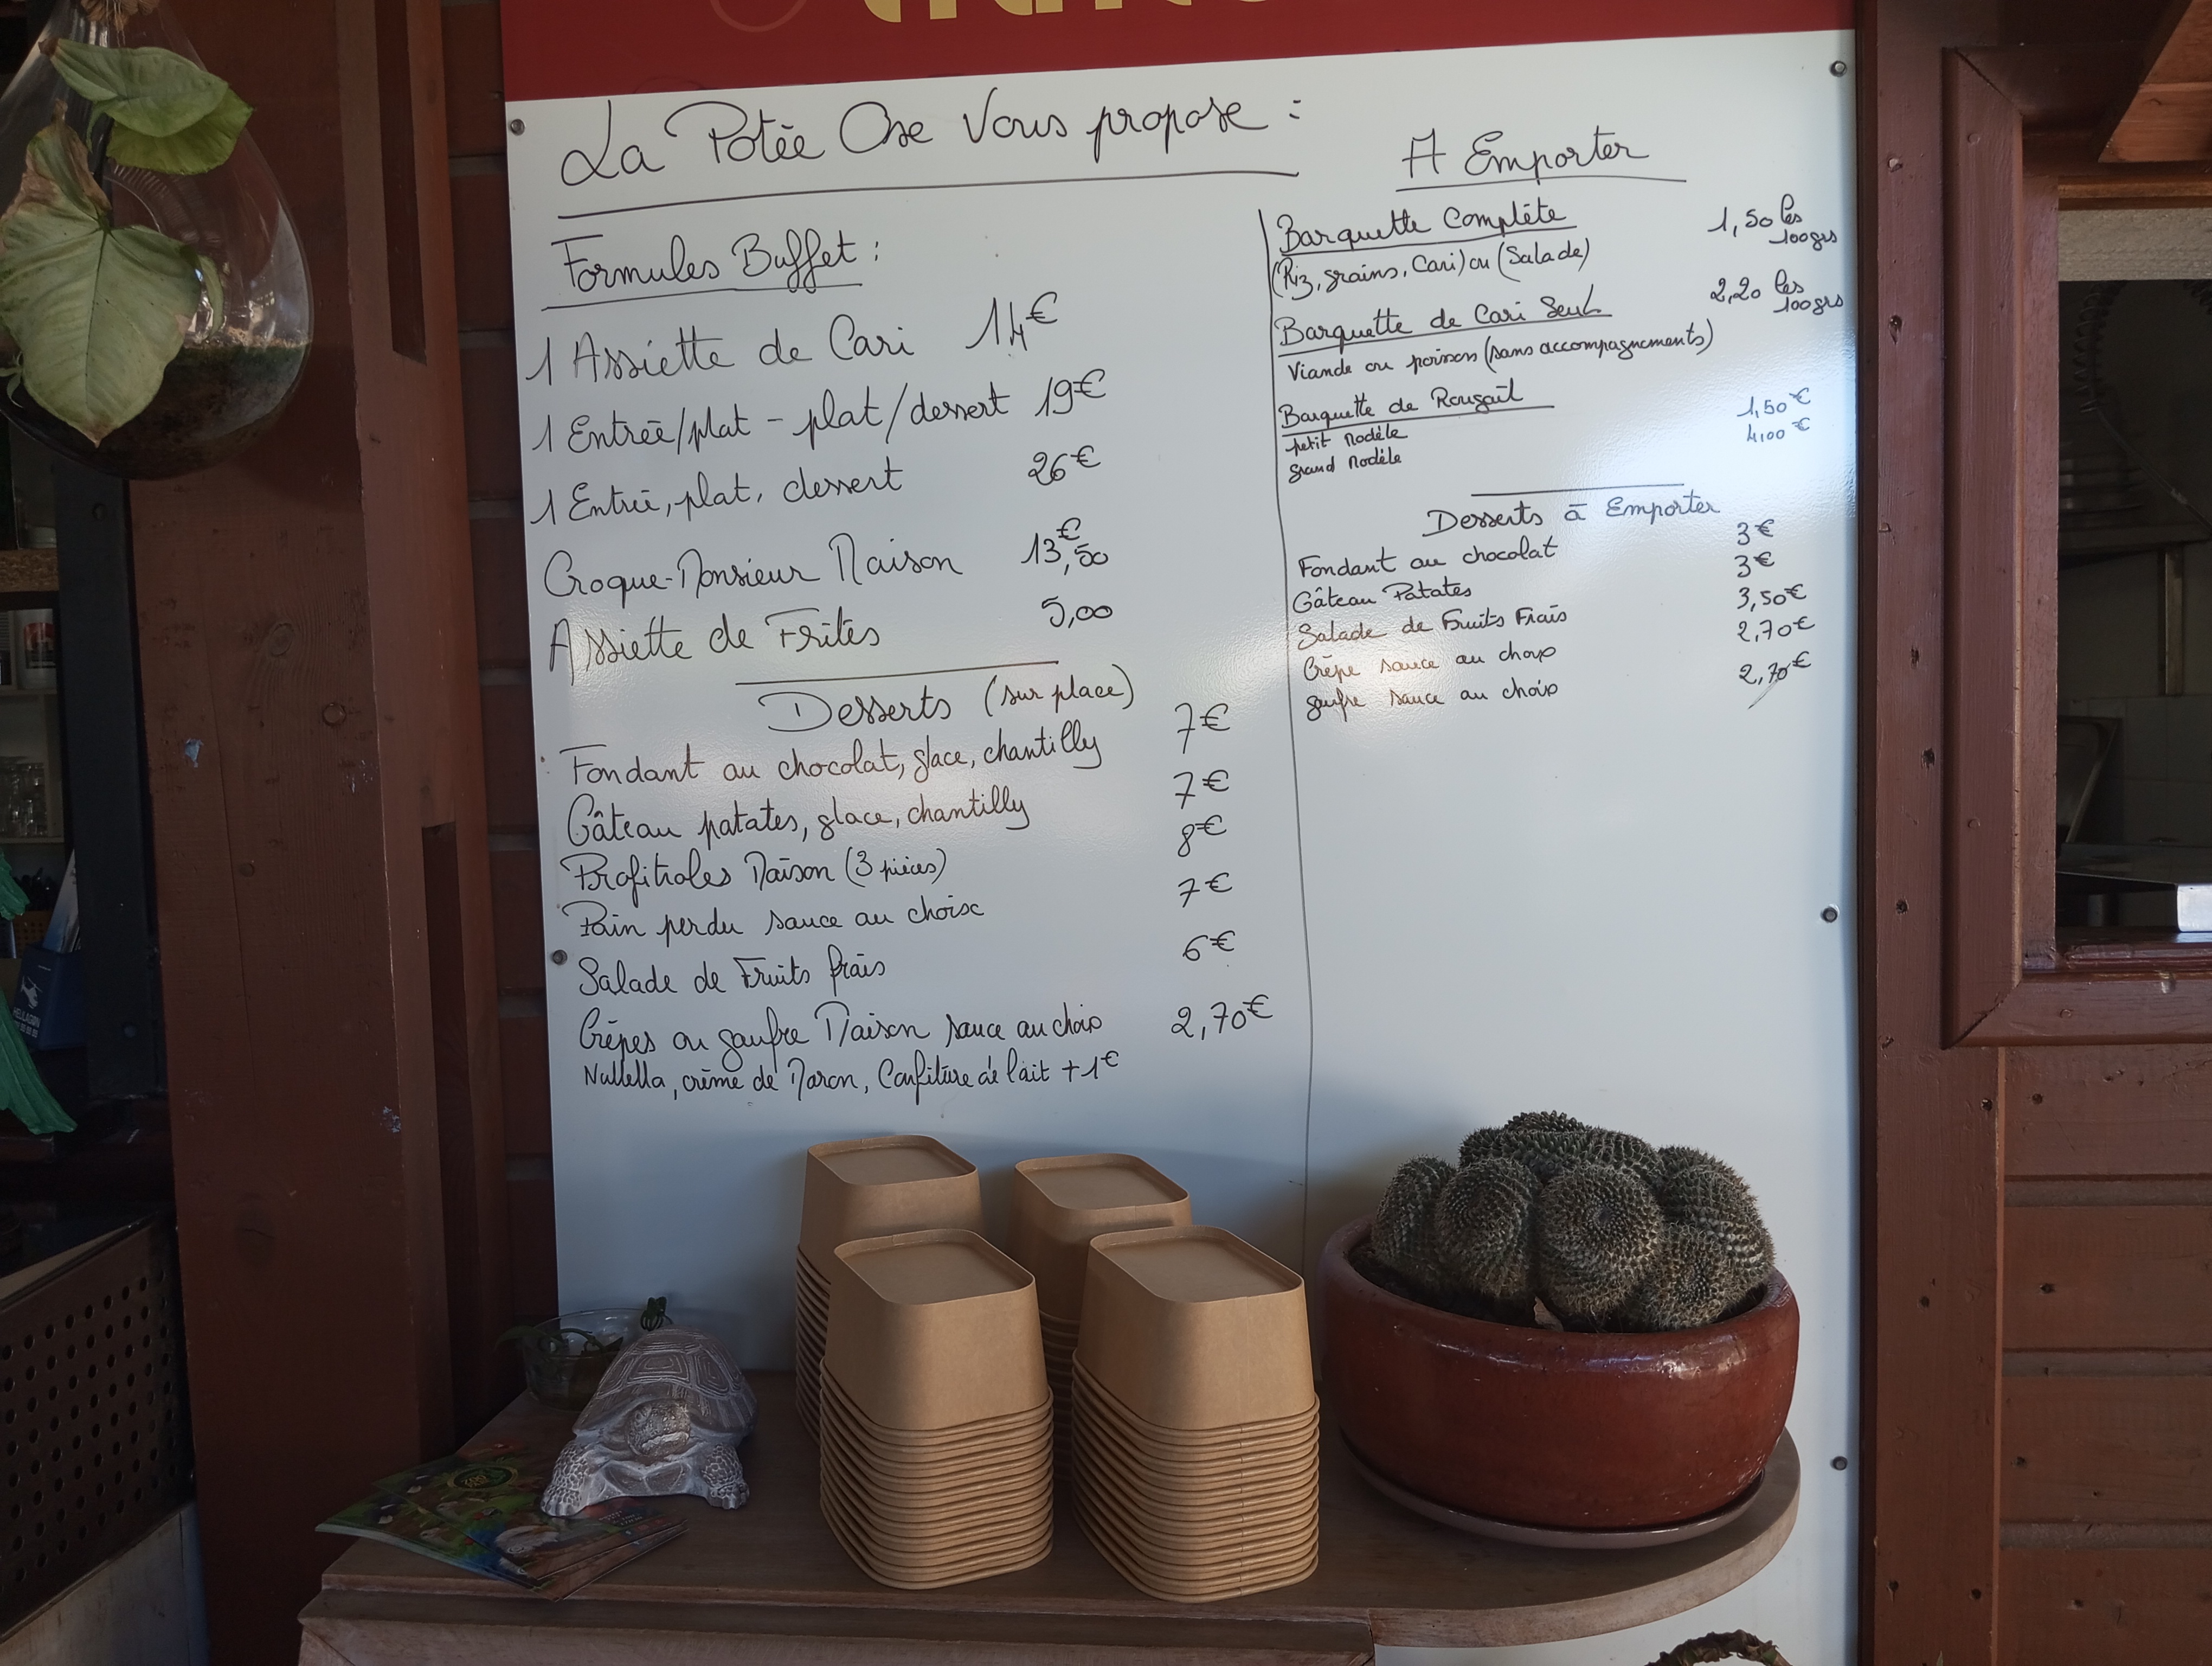 La Potée Ose Vous propose :
Formules Buffet :
1 Assiette de Cari 14€
1 Entrée/plat - plat/dessert 19€
1 Entrée, plat, dessert 26€
Croque-Monsieur Maison 13,50€
Assiette de Frites 5,00
Desserts (sur place)
Fondant au chocolat, glace, chantilly 7€
Gâteau patates, glace, chantilly 7€
Profitroles Maison (3 pièces) 8€
Pain perdu sauce au choix 7€
Salade de Fruits frais 6€
Crêpes ou gaufre Maison sauce au choix 2,70€
Nutella, crème de Maron, Confiture de lait +1€
A Emporter
Barquette Complète 1,50 les 100grs
(Riz, grains, Cari) ou (Salade)
Barquette de Cari Seul 2,20 les 100grs
Viande ou poisson (sans accompagnements)
Barquette de Rougail
petit Modèle 1,50€
grand Modèle 4,00€
Desserts à Emporter
Fondant au chocolat 3€
Gâteau Patates 3€
Salade de Fruits Frais 3,50€
Crêpe sauce au choix 2,70€
gaufre sauce au choix 2,70€